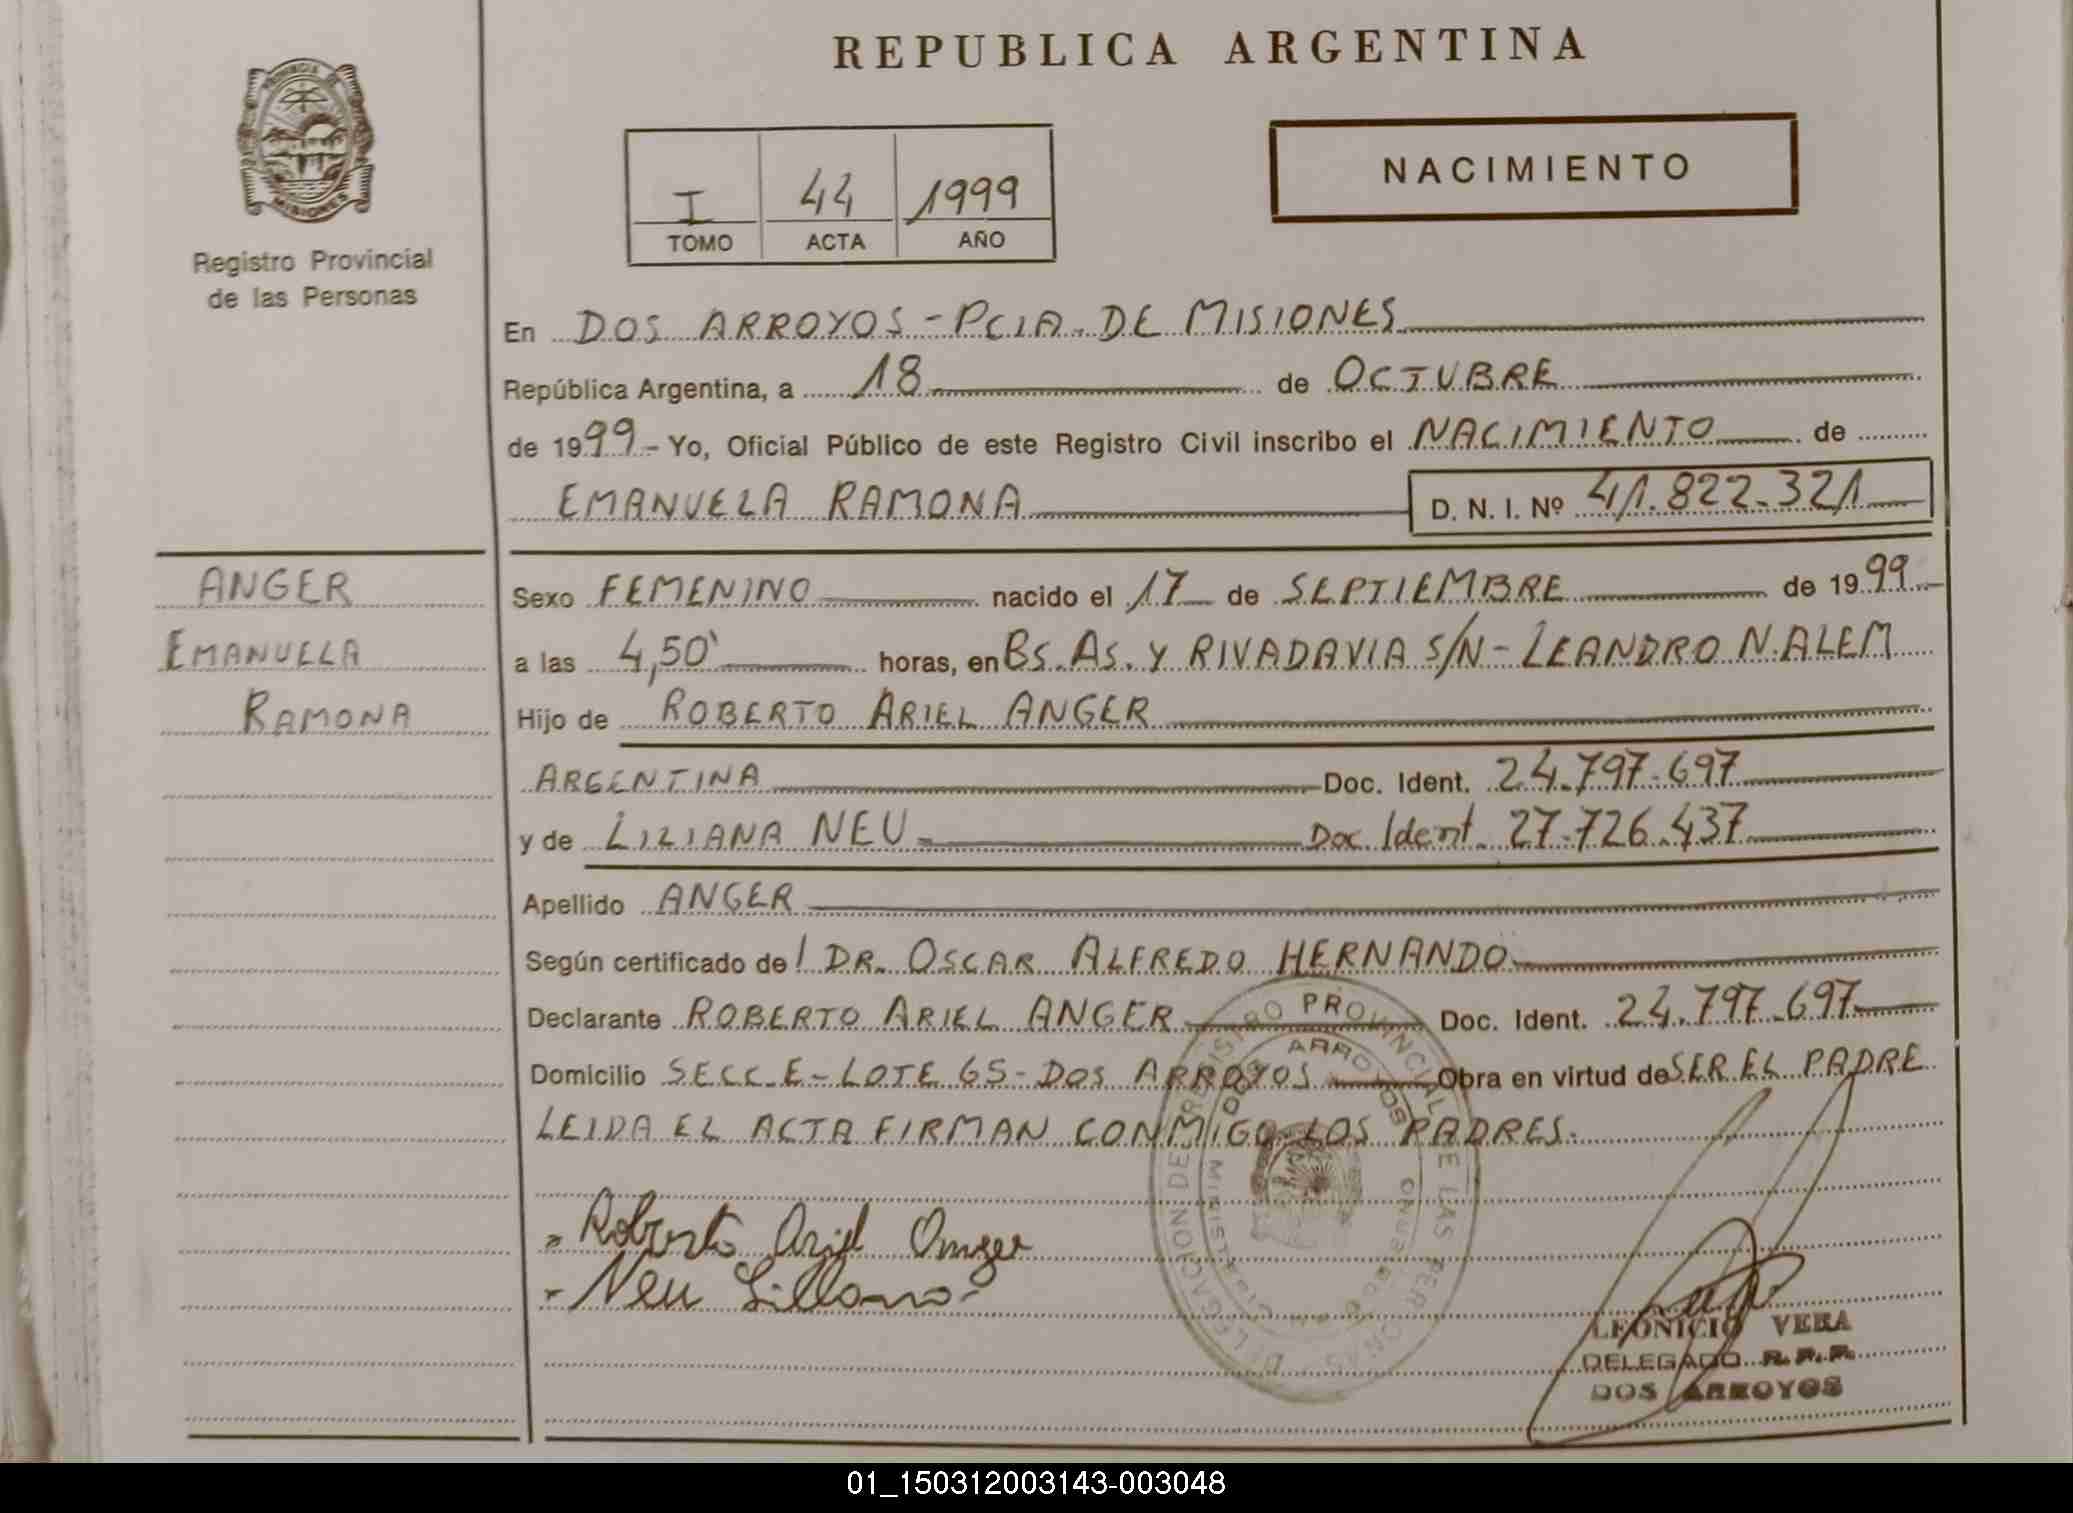 REPUBLICA ARGENTINA
PROVINCIA DE MISIONES
Registro Provincial
de las Personas
I 44 1999
TOMO ACTA AÑO
NACIMIENTO
En DOS ARROYOS - PCIA. DE MISIONES
República Argentina, a 18 de OCTUBRE
de 1999 - Yo, Oficial Público de este Registro Civil inscribo el NACIMIENTO de
EMANUELA RAMONA D. N. I. Nº 41.822.321
ANGER
EMANUELA
RAMONA
Sexo FEMENINO nacido el 17 de SEPTIEMBRE de 1999
a las 4,50' horas, en Bs. As. Y RIVADAVIA S/N - LEANDRO N. ALEM
Hijo de ROBERTO ARIEL ANGER
ARGENTINA Doc. Ident. 24.797.697
y de LILIANA NEU Doc. Ident. 27.726.437
Apellido ANGER
Según certificado del DR. OSCAR ALFREDO HERNANDO
Declarante ROBERTO ARIEL ANGER Doc. Ident. 24.797.697
Domicilio SECC. E - LOTE 65 - DOS ARROYOS Obra en virtud de SER EL PADRE
LEIDA EL ACTA FIRMAN CONMIGO LOS PADRES.
Roberto Ariel Anger
Neu Liliana
DELEGACION DE REGISTRO PROVINCIAL DE LAS PERSONAS
DOS ARROYOS
LEONICIO VERA
DELEGADO R.P.P.
DOS ARROYOS
01_150312003143-003048